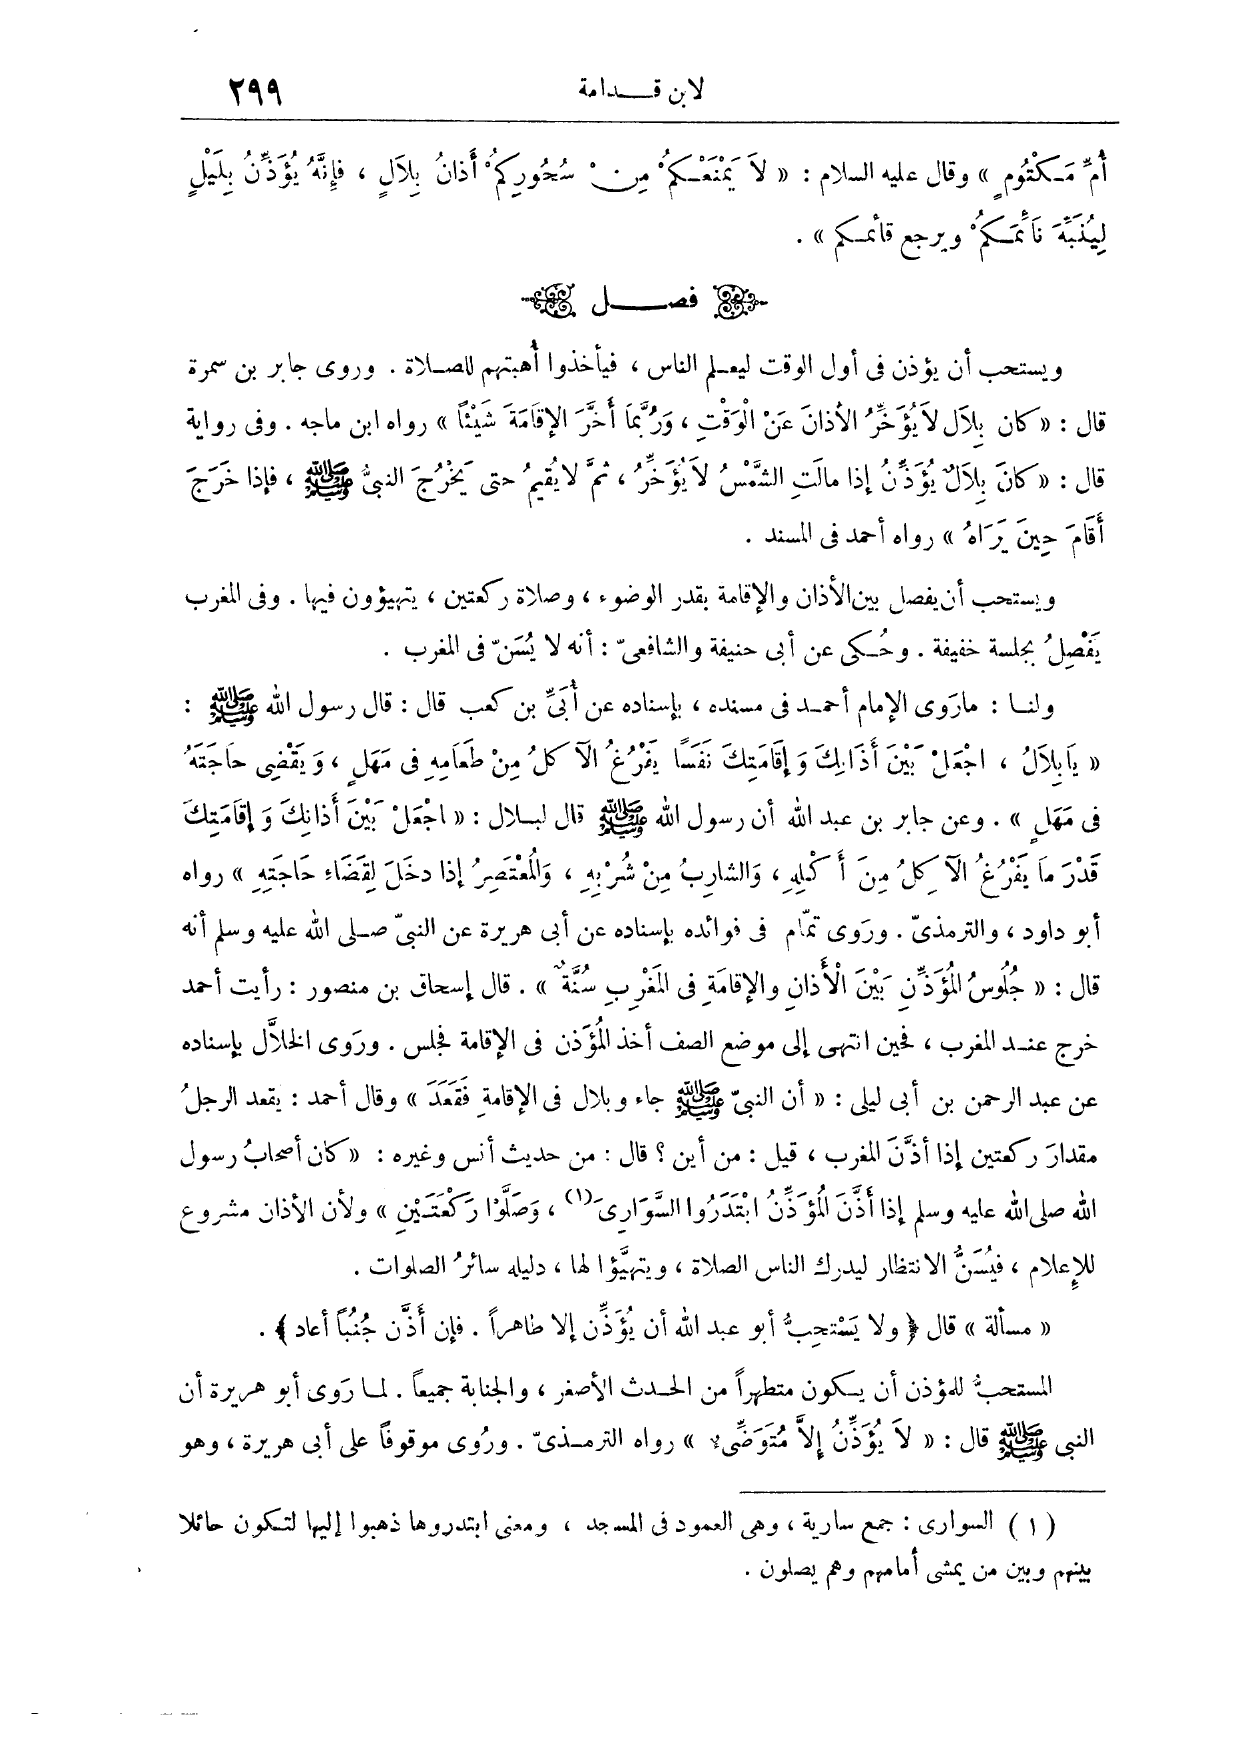 لابن قدامة ٢٩٩
أُمِّ مَكْتُومٍ » وقال عليه السلام : « لاَ يَمْنَعْكُمْ مِنْ سُحُورِكُمْ أَذَانُ بِلاَلٍ ، فإِنَّهُ يُؤَذِّنُ بِلَيْلٍ
لِيُنَبِّهَ نَائِمَكُمْ ويرجع قائمكم » .
فصل
ويستحب أن يؤذن فى أول الوقت ليعلم الناس ، فيأخذوا أُهبتهم للصلاة . وروى جابر بن سمرة
قال : « كان بِلاَل لاَ يُؤَخِّرُ الأذانَ عَنْ الْوَقْتِ ، وَرُبَّمَا أَخَّرَ الإقَامَةَ شَيْئًا » رواه ابن ماجه . وفى رواية
قال : « كانَ بِلاَلٌ يُؤَذِّنُ إذا مالَتِ الشَّمْسُ لاَ يُؤَخِّرُ ، ثمَّ لا يُقيمُ حتى يَخْرُجَ النبىُّ ﷺ ، فإذا خَرَجَ
أَقَامَ حِينَ يَرَاهُ » رواه أحمد فى المسند .
ويستحب أن يفصل بين الأذان والإقامة بقدر الوضوء ، وصلاة ركعتين ، يتهيؤون فيها . وفى المغرب
يَفْصِلُ بجلسة خفيفة . وحُكى عن أبى حنيفة والشافعىّ : أنه لا يُسَنّ فى المغرب .
ولنا : مارَوى الإمام أحمد فى مسنده ، بإسناده عن أُبَىِّ بن كعب قال : قال رسول الله ﷺ :
« يَابِلاَلُ ، اجْعَلْ بَيْنَ أَذَانِكَ وَإِقَامَتِكَ نَفَسًا يَفْرُغُ الآكلُ مِنْ طَعَامِهِ فى مَهَلٍ ، وَيَقْضِى حاجَتَهُ
فى مَهَلٍ » . وعن جابر بن عبد الله أن رسول الله ﷺ قال لبلال : « اجْعَلْ بَيْنَ أَذانِكَ وَإقَامَتِكَ
قَدْرَ مَا يَفْرُغُ الآكِلُ مِنَ أَكْلِهِ ، وَالشارِبُ مِنْ شُرْبِهِ ، وَالْمُعْتَصِرُ إذا دخَلَ لِقَضَاء حَاجَتِهِ » رواه
أبو داود ، والترمذىّ . ورَوى تمّام فى فوائده بإسناده عن أبى هريرة عن النبىّ صلى الله عليه وسلم أنه
قال : « جُلُوسُ المُؤَذِّنِ بَيْنَ الْأَذانِ والإقامَةِ فى المَغْرِبِ سُنَّةٌ » . قال إسحاق بن منصور : رأيت أحمد
خرج عند المغرب ، فحين انتهى إلى موضع الصف أخذ المُؤَذن فى الإقامة فجلس . ورَوى الخلاَّل بإسناده
عن عبد الرحمن بن أبى ليلى : « أن النبىّ ﷺ جاء وبلال فى الإقامةِ فَقَعَدَ » وقال أحمد : يقعد الرجلُ
مقدارَ ركعتين إذا أذَّنَ المغرب ، قيل : من أين ؟ قال : من حديث أنس وغيره : « كان أصحابُ رسول
الله صلى الله عليه وسلم إذا أَذَّنَ المُؤَذِّنُ ابْتَدَرُوا السَّوَارِىَ(١) ، وَصَلَّوْا رَكْعَتَيْنِ » ولأن الأذان مشروع
للإِعلام ، فيُسَنُّ الانتظار ليدرك الناس الصلاة ، ويتهيَّؤا لها ، دليله سائرُ الصلوات .
« مسألة » قال ﴿ ولا يَسْتحِبُّ أبو عبد الله أن يُؤَذِّن إلا طاهراً . فإن أَذَّن جُنُبًا أعاد ﴾ .
المستحبُّ للمؤذن أن يكون متطهراً من الحدث الأصغر ، والجنابة جميعاً . لما رَوى أبو هريرة أن
النبى ﷺ قال : « لاَ يُؤَذِّنُ إلاَّ مُتَوَضِّىء » رواه الترمذىّ . ورُوى موقوفاً على أبى هريرة ، وهو
( ١ ) السوارى : جمع سارية ، وهى العمود فى المسجد ، ومعنى ابتدروها ذهبوا إليها لتكون حائلا
بينهم وبين من يمشى أمامهم وهم يصلون .